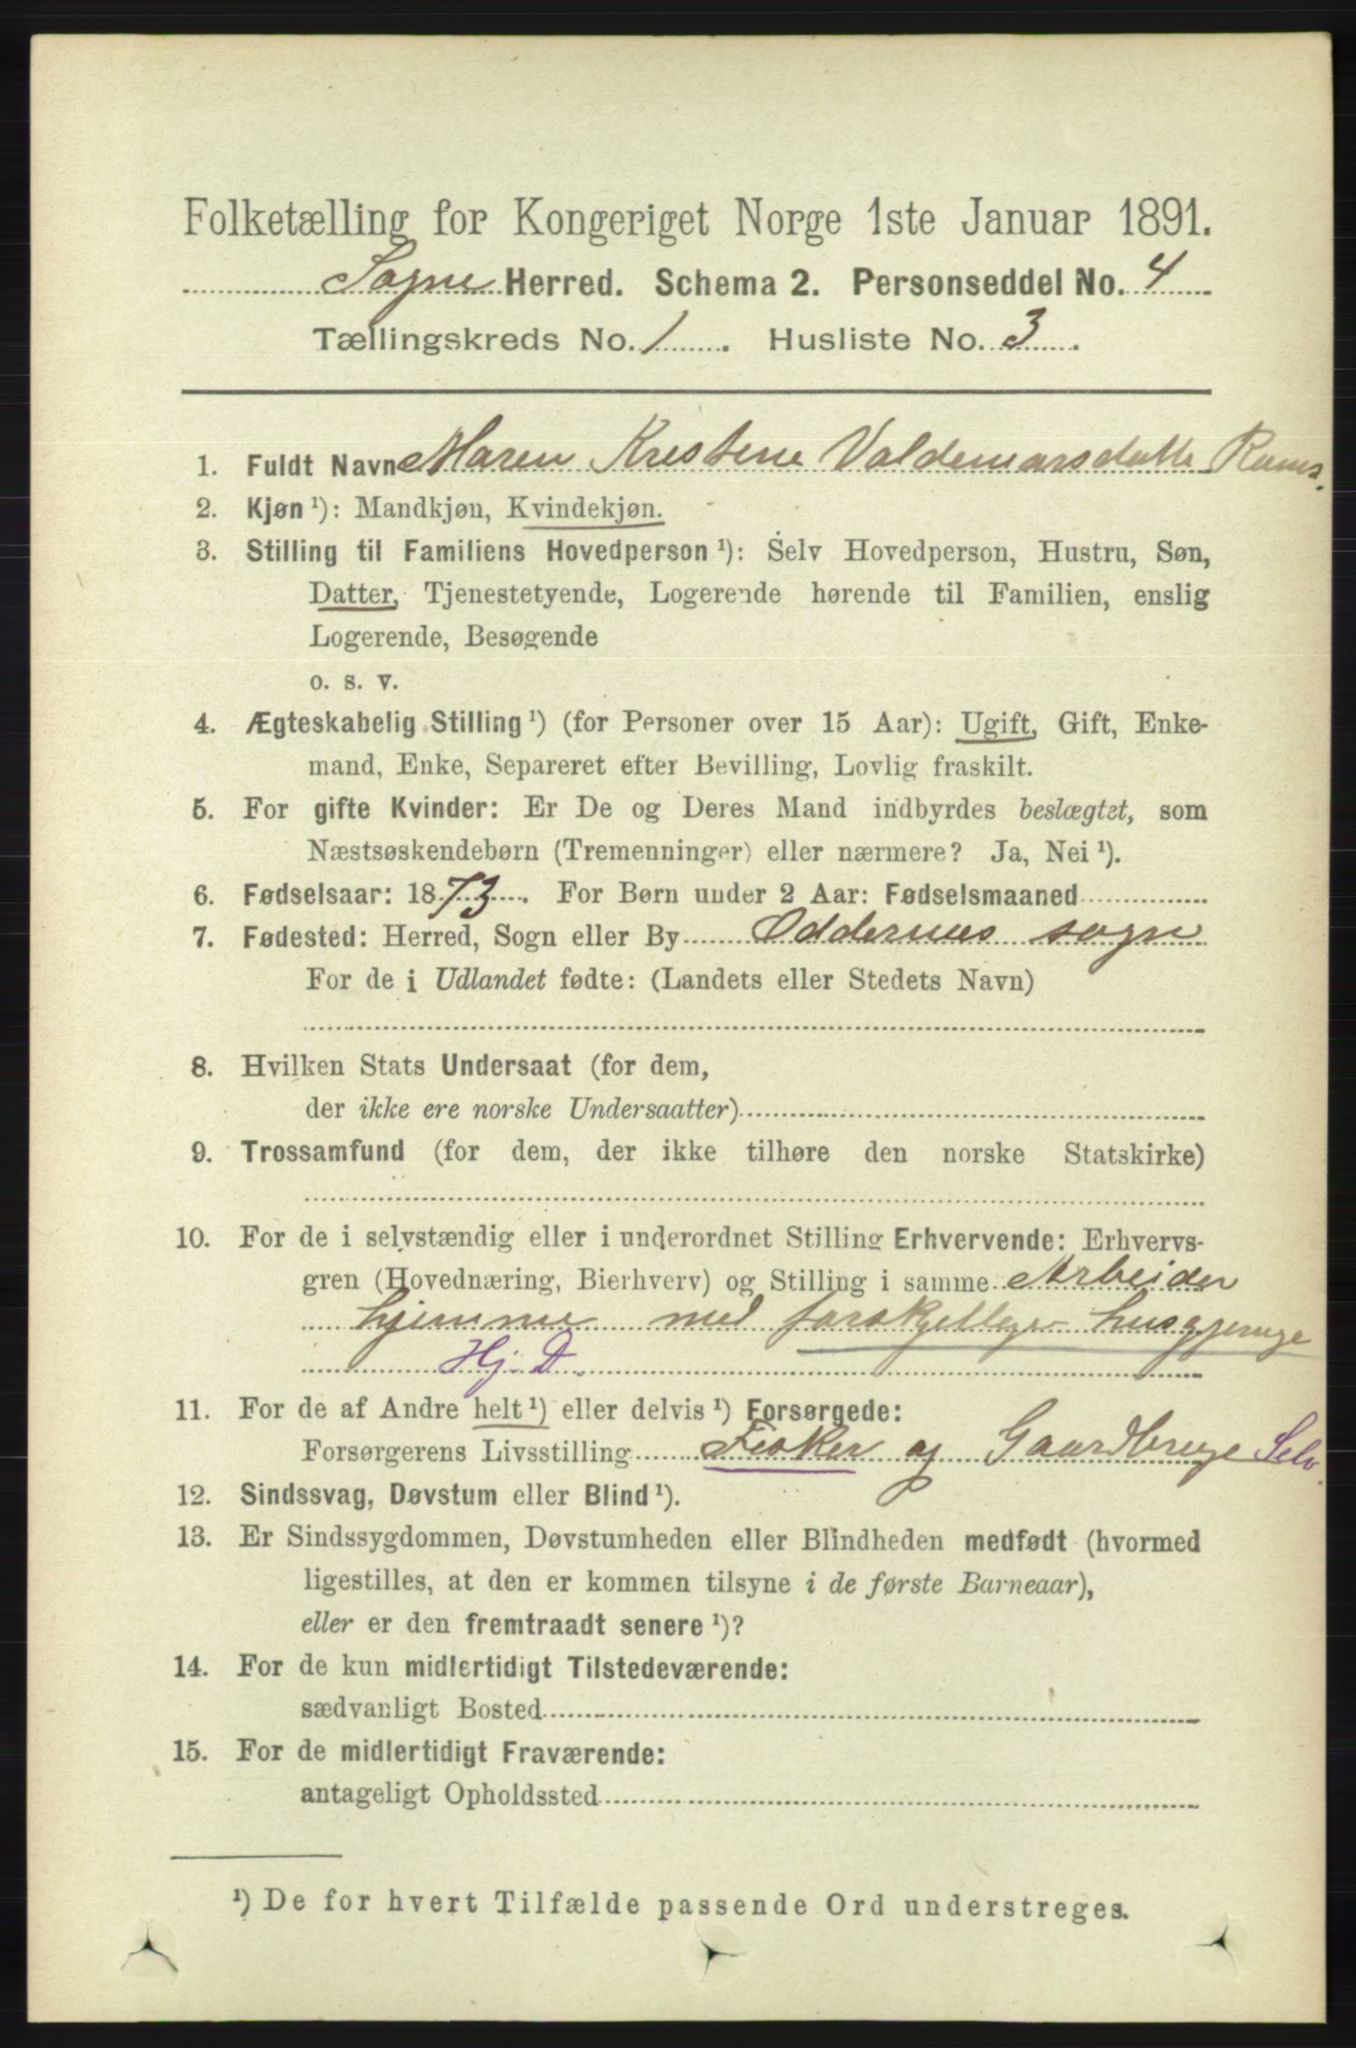 Folketælling for Kongeriget Norge 1ste Januar 1891.
Søgne Herred. Schema 2. Personseddel No. 4
Tællingskreds No. 1. Husliste No. 3.
1. Fuldt Navn Maren Kristene Valdemarsdatte
2. Kjøn ¹): Mandkjøn, Kvindekjøn.
3. Stilling til Familiens Hovedperson ¹): Selv Hovedperson, Hustru, Søn,
Datter, Tjenestetyende, Logerende hørende til Familien, enslig
Logerende, Besøgende
o. s. v.
4. Ægteskabelig Stilling ¹) (for Personer over 15 Aar): Ugift, Gift, Enke-
mand, Enke, Separeret efter Bevilling, Lovlig fraskilt.
5. For gifte Kvinder: Er De og Deres Mand indbyrdes beslægtet, som
Næstsøskendebørn (Tremenninger) eller nærmere? Ja, Nei ¹).
6. Fødselsaar: 1873. For Børn under 2 Aar: Fødselsmaaned
7. Fødested: Herred, Sogn eller By Oddernes sogn
For de i Udlandet fødte: (Landets eller Stedets Navn)
8. Hvilken Stats Undersaat (for dem,
der ikke ere norske Undersaatter)
9. Trossamfund (for dem, der ikke tilhøre den norske Statskirke)
10. For de i selvstændig eller i underordnet Stilling Erhvervende: Erhvervs-
gren (Hovednæring, Bierhverv) og Stilling i samme Arbeider
hjemme med forskjelliger husgjeringe
Hj. D.
11. For de af Andre helt ¹) eller delvis ¹) Forsørgede:
Forsørgerens Livsstilling Fisker og Gaardbruge Selv.
12. Sindssvag, Døvstum eller Blind ¹).
13. Er Sindssygdommen, Døvstumheden eller Blindheden medfødt (hvormed
ligestilles, at den er kommen tilsyne i de første Barneaar),
eller er den fremtraadt senere ¹)?
14. For de kun midlertidigt Tilstedeværende:
sædvanligt Bosted
15. For de midlertidigt Fraværende:
antageligt Opholdssted
¹) De for hvert Tilfælde passende Ord understreges.